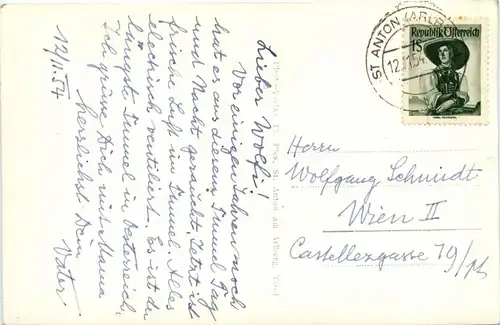 Lieber Wolfi!
Vor einigen Jahren noch
hat er aus diesem Tunnel Tag
und Nacht geraucht. Jetzt ist
frische Luft im Tunnel. Alles
elektrisch ventiliert. Es ist der
längste Tunnel in Österreich.
Ich grüße Dich mit Mama
herzlichst Dein
Vater
12/11.54
St. Anton am Arlberg, Tirol
ST ANTON (ARLBERG
12.11.54
Republik Österreich
1S
Herrn
Wolfgang Schmidt
Wien II
Castellezgasse 29/